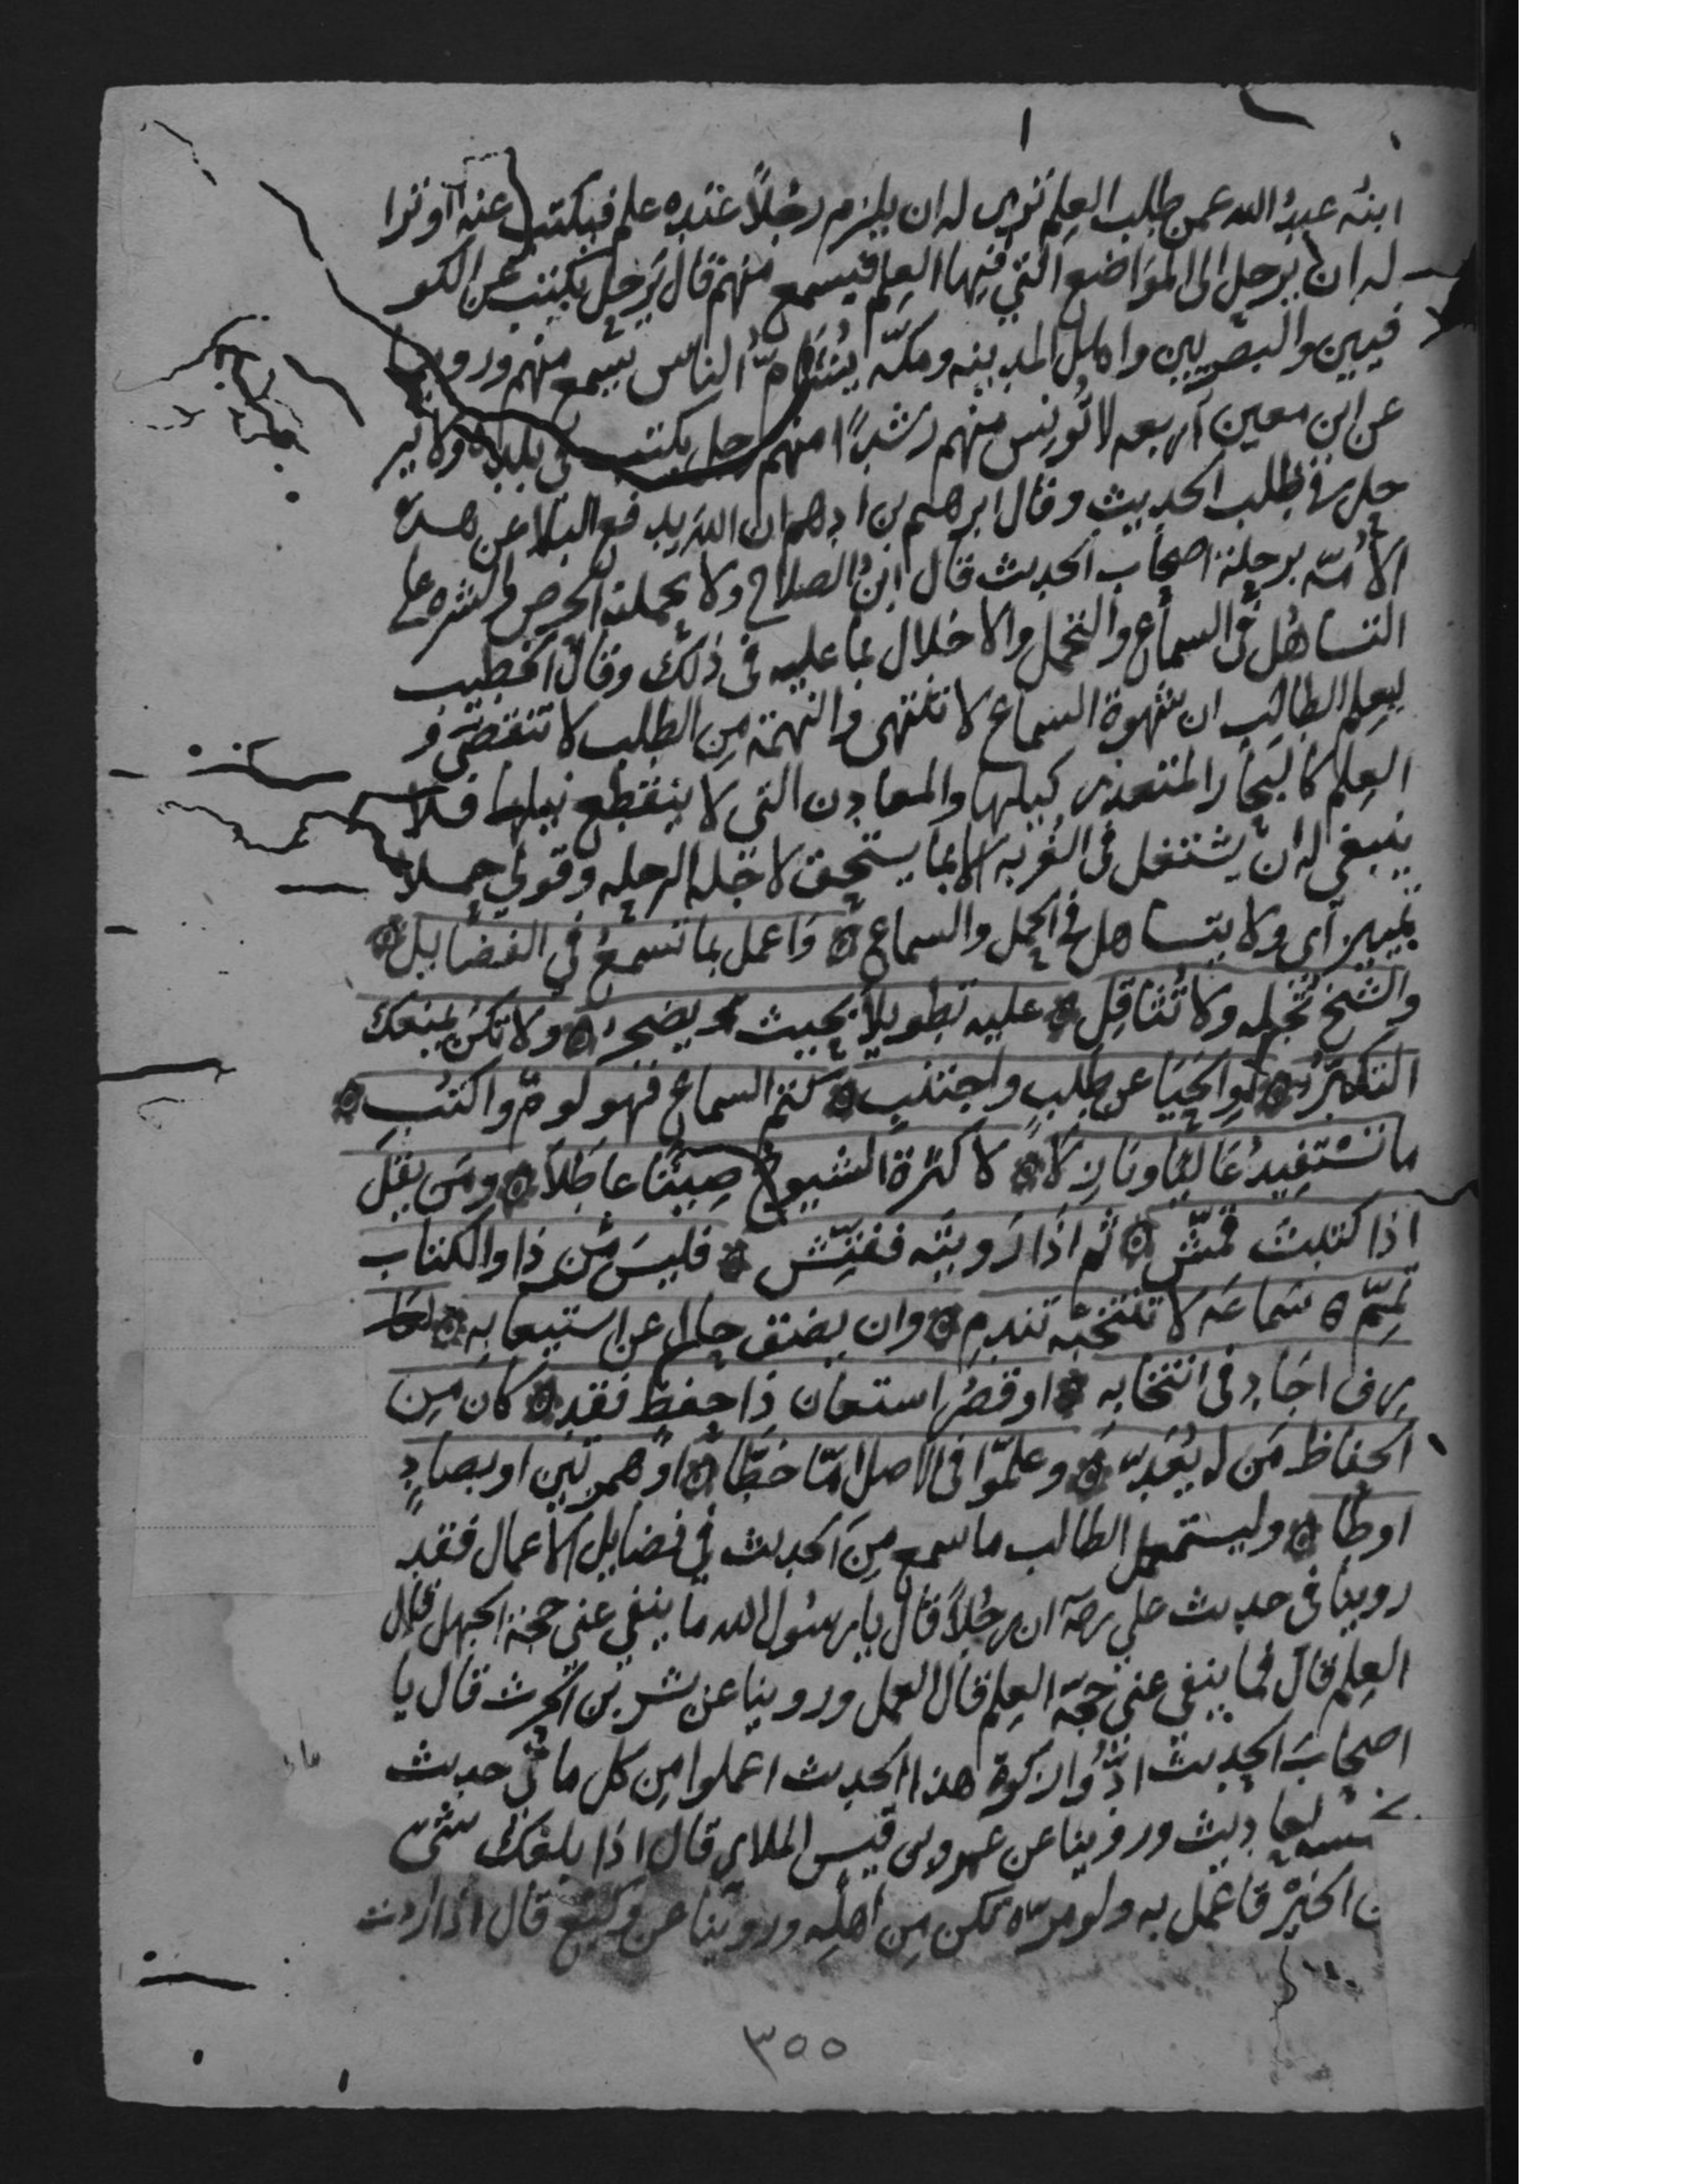 ابنه عبدُ الله عمن طلب العِلم ترى له ان يلزم رجُلاً عنده علم فيكتب عنه او ترا
له ان يرحل الى المَوَاضع التي فيها العِلم فيسمع منهم قال يَرحل يكتب عن الكو
فيين والبصريين واهل المدينه ومكّه يُشَامُّ الناس يسمع منهم وروينا
عن ابن معين اربعه لا تُونِس منهم رُشدًا منهم رجل يكتب في بلده ولا ير
حل في طلب الحديث وقال ابرهيم بن ادهم ان الله يدفع البلا عن هذه
الأمّه برحلة اصحاب الحديث قال ابن الصلاح ولا يحملنه الحرص والشره على
التساهُل في السماع والتحمل والاخلال بما عليه في ذلك وقال الخطيب
ليعلم الطالب ان شهوة السماع لا تنتهي والنهمة مِن الطلب لا تنقضي و
العِلم كالبحار المتعذر كيلها والمعادن التي لا ينقطع نيلها فلا
ينبغي له ان يشتغل في الغُربه الا بما يستحق لاجله الرحله وقولي حملا
تمييز أي ولا يتساهل في الحمل والسماع ۞ وَاعمل بما تسمعُ في الفضايل ۞
والشيخ تُجِله ولا تُثاقِل ۞ عليه تطويلاً بحيث يضجر ۞ ولا تكن يمنعك
التكبّرُ ۞ أوِ الحَيَا عن طلبٍ واجتنب ۞ كتم السماع فهو لومٌ واكتُب ۞
ما تَسْتفيدُ عَاليًا ونازلا ۞ لا كثرةَ الشيوخ صِيتًا عَاطلاَ ۞ ومَن يقل
اذا كتبتَ قمّش ۞ ثم اذا رَويتَه ففتِّش ۞ فليسَ مِن ذا والكتاب
تمِّم ۞ سَماعَه لا تنتخبْه تندمِ ۞ وان يضق حال عن استيعابه ۞ لعا
رف اجَاد في انتخابه ۞ او قصُر استعان ذا حفظ فقد ۞ كان مِن
الحفاظ مَن له يُعَدّ ۞ وعلّموا في الاصل امّا خطّا ۞ اوْ همزتين او بصادٍ
اوطا ۞ وليستعمل الطالب ما سمع مِن الحديث في فضايل الاعمال فقد
روينا في حديث علي رضه ان رجُلاً قال يا رسُول الله ما ينفي عني حجة الجهل قال
العِلم قال فما ينفي عني حجّة العِلم قال العمل وروينا عن بشر بن الحرث قال يا
اصحابَ الحديث ادُّوا زكوة هذا الحديث اعملوا مِن كل مائتى حديث
بخمسة احاديث وروينا عن عمرو بن قيس الملاي قال اذا بلغك شيء
من الخَيْر فاعمل به ولو مرّه تكن مِن اهلِه وروينا عن وكيع قال اذا اردت
٣٥٥